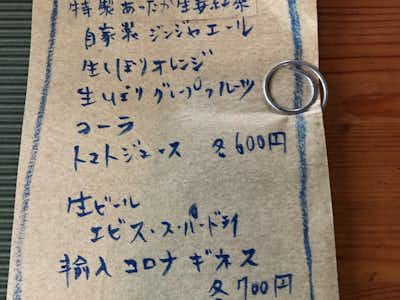 特製あったか生姜紅茶
自家製 ジンジャエール
生しぼりオレンジ
生しぼり グレープフルーツ
コーラ
トマトジュース 各600円
生ビール
エビス・スーパードライ
輸入 コロナ ギネス
各700円